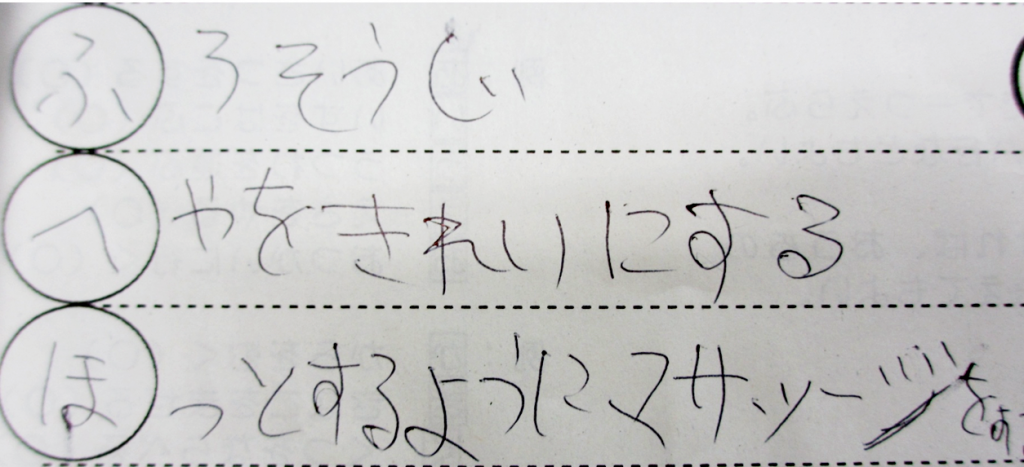 ふろそうじ
へやをきれいにする
ほっとするようにマサッージをす